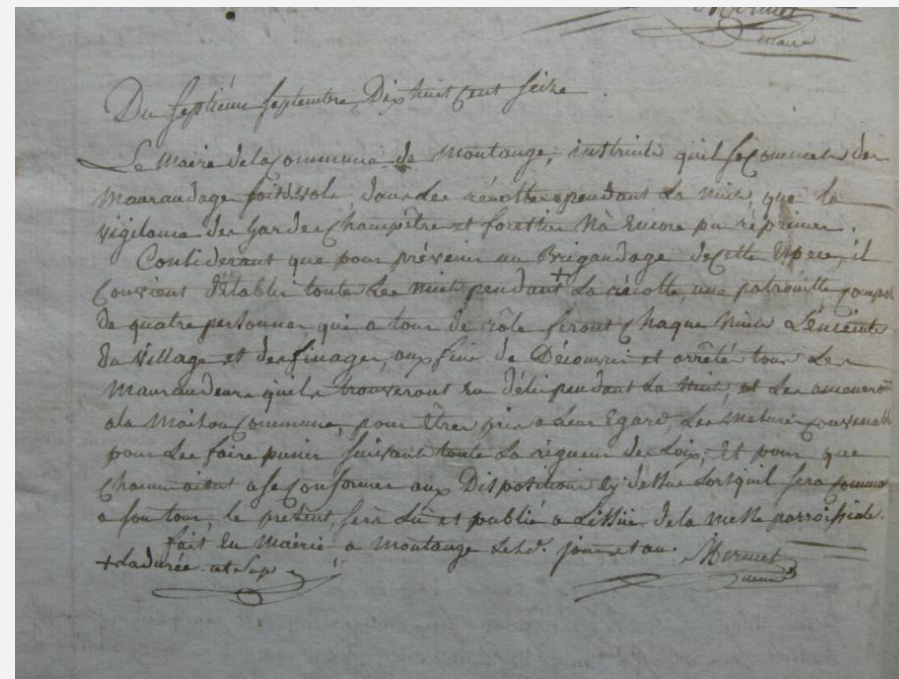 Mermet
maire
Du septiéme septembre Dix huit cent seize
Le Maire de la Commune de Montange, instruit qu'il se commet des
Maraudages soit vols dans les récoltes pendant la nuit, que la
vigilance des gardes Champêtre et forestier n'à Encore pu réprimer.
Considerant que pour prévenir un Brigandage de cette Espece, il
Convient d'établir toute les nuits pendant + la récolte, une patrouille
de quatre personnes qui a tour de rôle feront Chaque nuit L'enceinte
du village et des finages, aux fins de Découvrir et arrêté tous Les
Maraudeurs quils trouveront en délit pendant la nuit et Les ameneront
a la Maison Commune, pour Etres pris a Leur Egard, Les Mesures Convenable
pour Les faire punir suivant toute La rigueur des Loix; Et pour que
Chacun aient a se Conformer aux Disposition cy dessus Lorsquil sera
a son tour, le présent sera Lû et publié a L'issüe de la Messe parroissiale.
fait En Mairie a Montange Lesd. jour et an. Mermet
+ La durée de maire